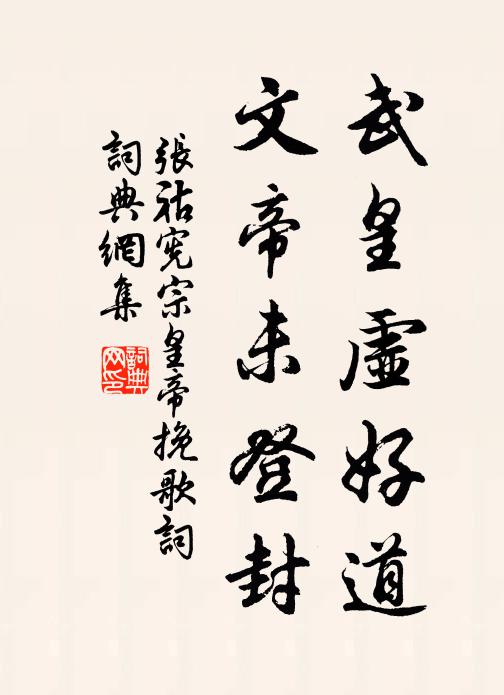 武皇虛好道
文帝未登封
張祜憲宗皇帝挽歌詞
詞典網集
詞典網印